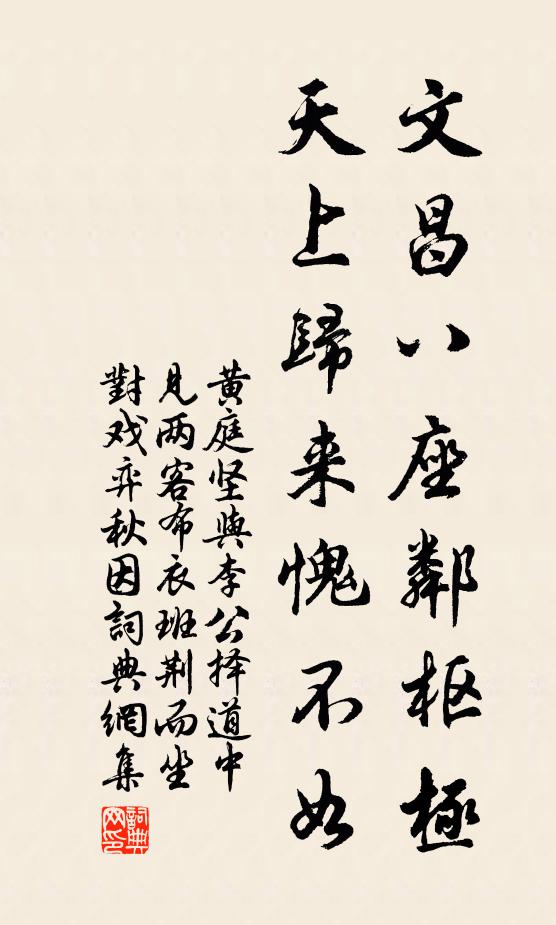 文昌八座鄰枢極
天上歸来愧不如
黄庭坚與李公择道中
見两客布衣班荆而坐
對戏弈秋因詞典網集
詞典網印